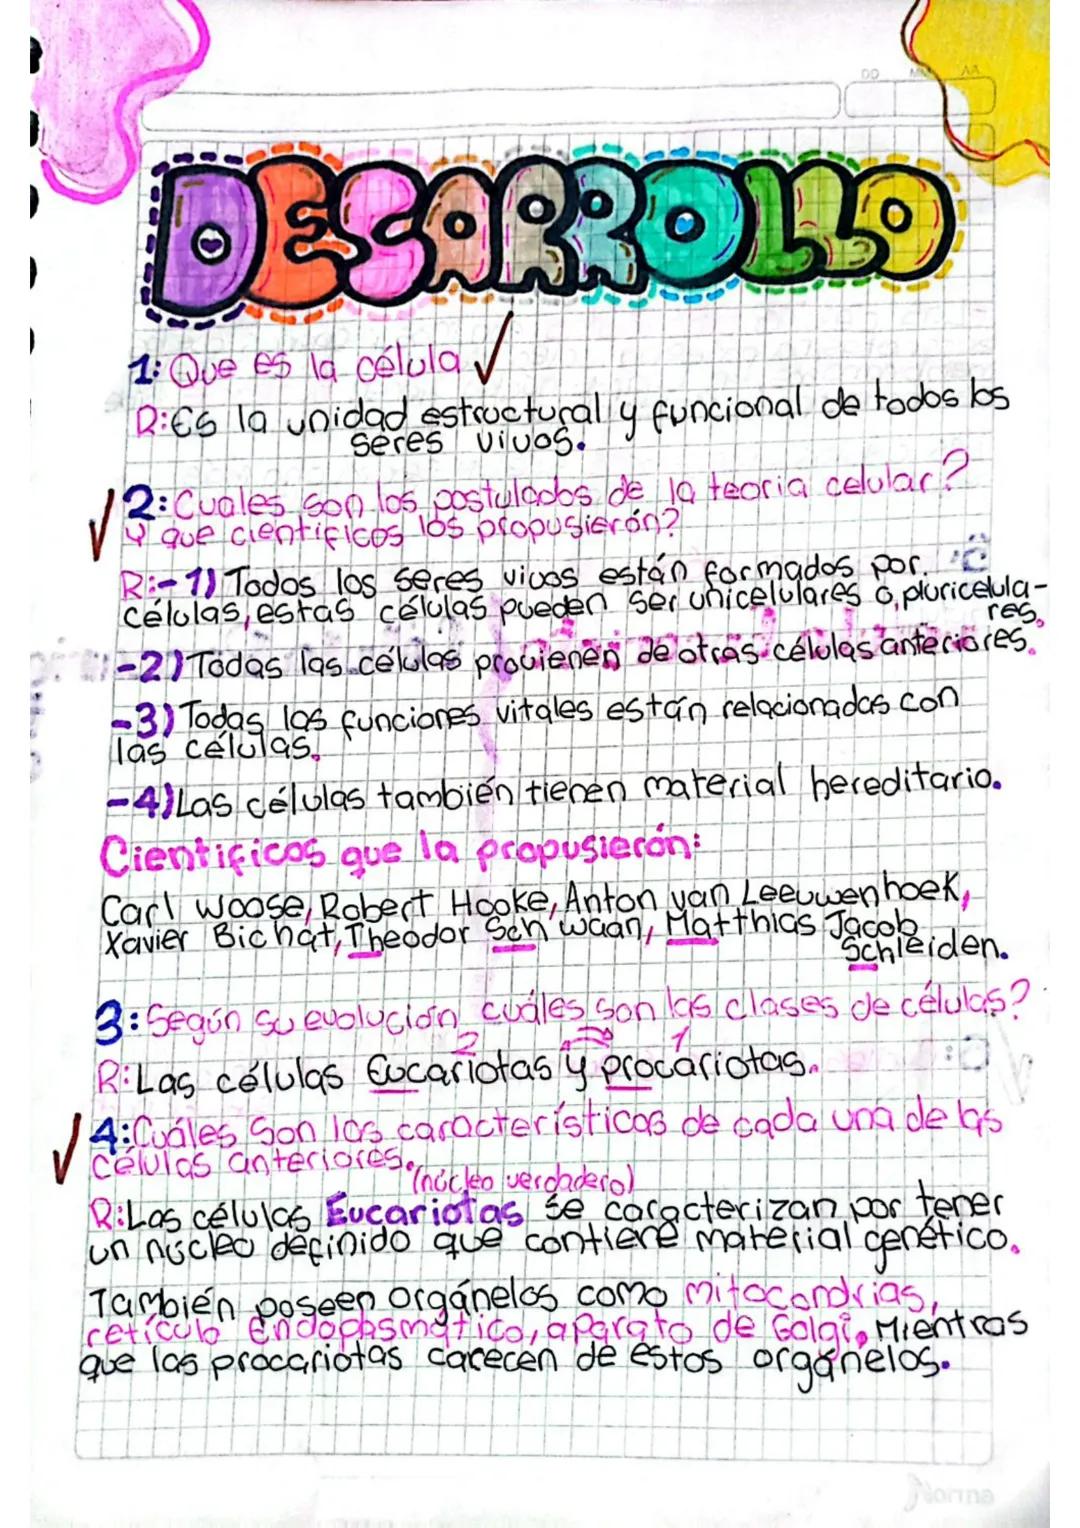 DD MM AA
DESARROLLO
1: Que es la célula
R: Es la unidad estructural y funcional de todos los
seres vivos.
2: Cuales son los postulados de la teoria celular?
y que cientificos los propusierón?
R:-1) Todos los seres vivos están formados por
células, estas células pueden ser unicelulares o, pluricelula-
res.
-2) Todas las células provienen de otras células anteriores.
-3) Todas las funciones vitales están relacionadas con
las células.
-4) Las células también tienen material hereditario.
Cientificos que la propusierón:
Carl Woose, Robert Hooke, Anton van Leeuwenhoek,
Xavier Bichat, Theodor Sch'waan, Matthias Jacob
Schleiden.
3: Según su evolución cuáles son las clases de células?
2 1
R: Las células Eucariotas y procariotas.
4: Cuáles son las características de cada una de las
células anteriores.
(núcleo verdadero)
R: Las células Eucariotas se caracterizan por tener
un núcleo definido que contiene material genético.
También poseen orgánelos como mitocondrias,
retículo Endoplasmático, aparato de Golgi, Mientras
que las procariotas carecen de estos orgánelos.
Norma